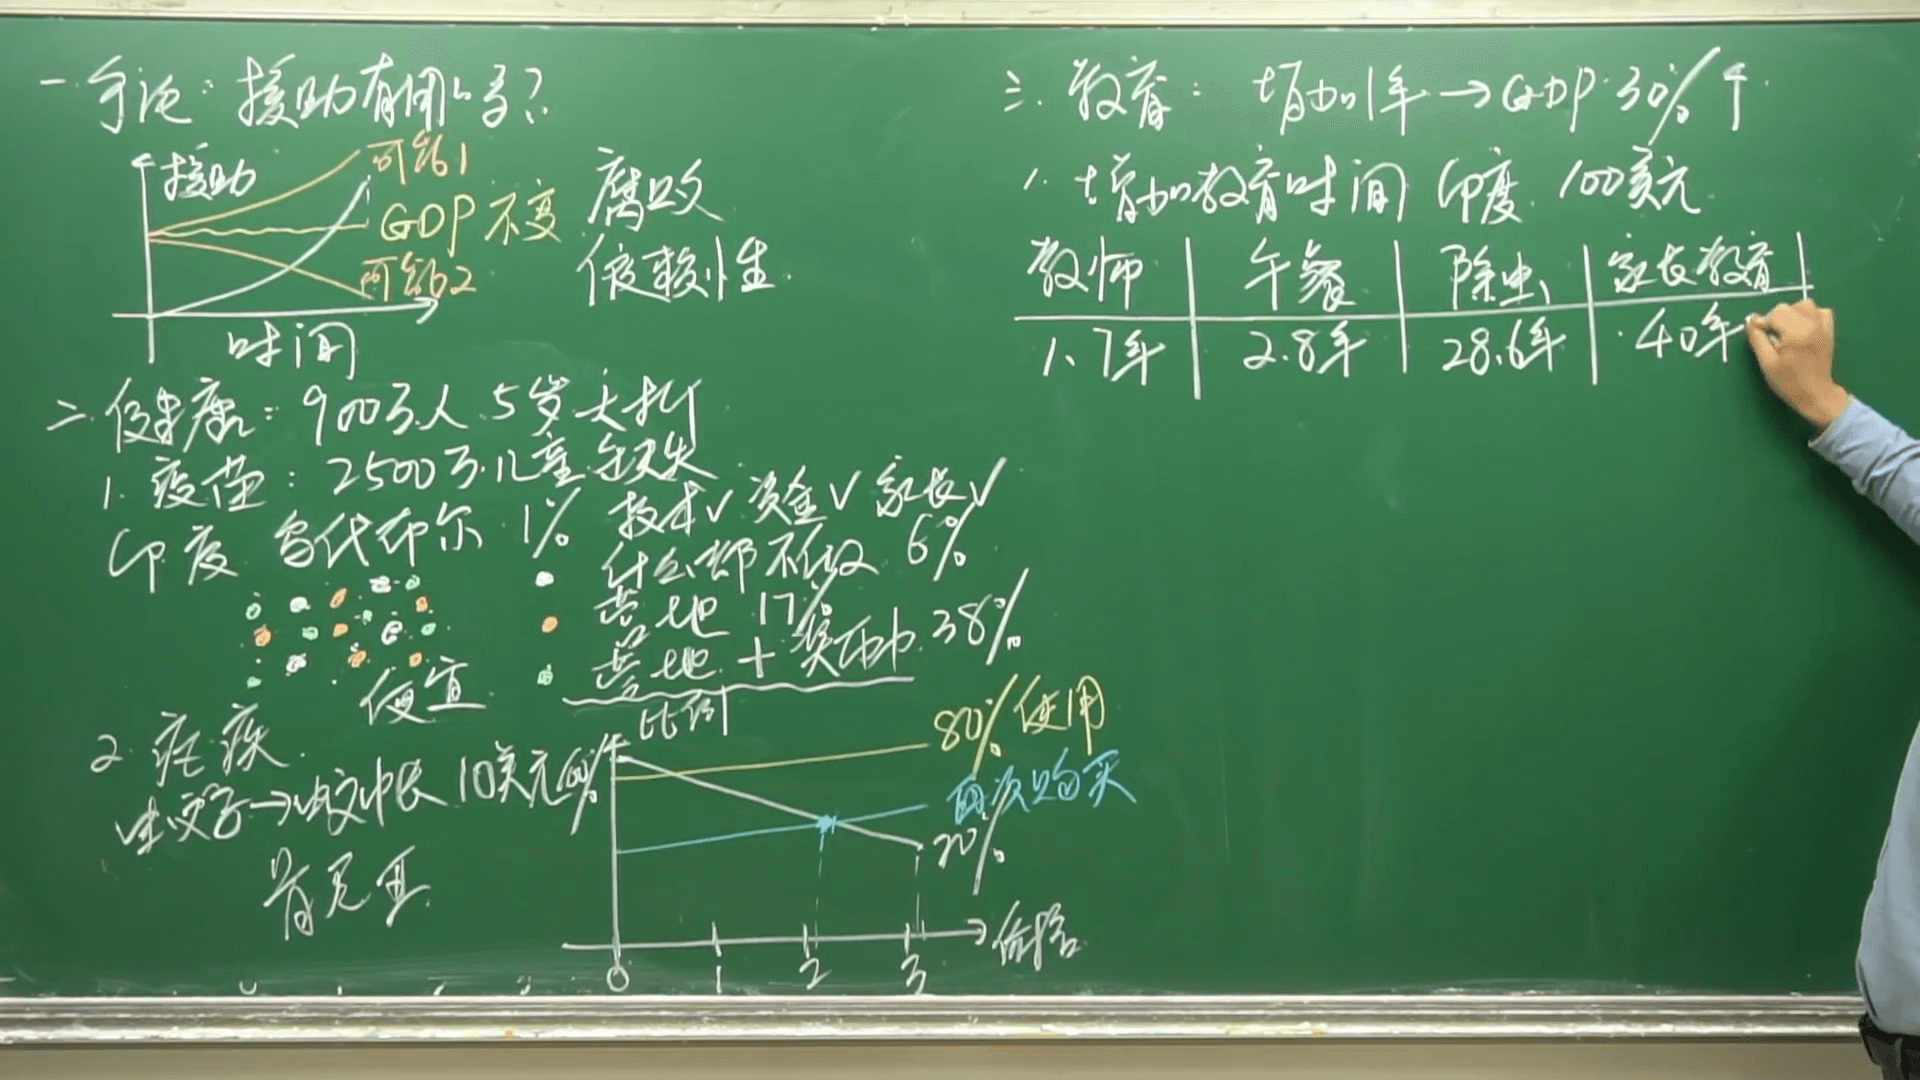 一. 争论: 援助有用吗?
援助
可能1
GDP不变
可能2
时间
腐败
依赖性.
二. 健康: 900万人 5岁夭折
1. 疫苗: 2500万儿童缺失
印度 乌代布尔 1% 技术√ 资金√ 家长√
什么都不做 6%
营地 17%
营地 + 奖励 38%
便宜
2. 疟疾.
生孩子→蚊帐 10美元
肯尼亚
比例
80% 使用
再次购买
20%
0 1 2 3 价格
三. 教育: 增加1年 → GDP 30% ↑
1. 增加教育时间 印度 100美元
教师 午餐 除虫 家长教育
1.7年 2.8年 28.6年 40年